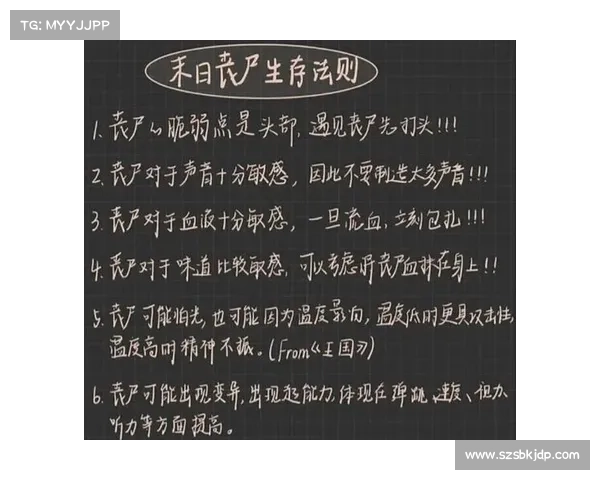 TG: MYYJJPP
末日丧尸生存法则
1. 丧尸的脆弱点是头部,遇见丧尸先打头!!!
2. 丧尸对于声音十分敏感,因此不要制造太多声音!!!
3. 丧尸对于血液十分敏感,一旦流血,立刻包扎!!!
4. 丧尸对于味道比较敏感,可以考虑将丧尸血抹在身上!!
5. 丧尸可能怕光,也可能因为温度影响,温度低时更具攻击性,
温度高时精神不振。(From《王国》)
6. 丧尸可能出现变异,出现超能力,体现在弹跳、速度、视力、
听力等方面提高。
www.szsbkjdp.com